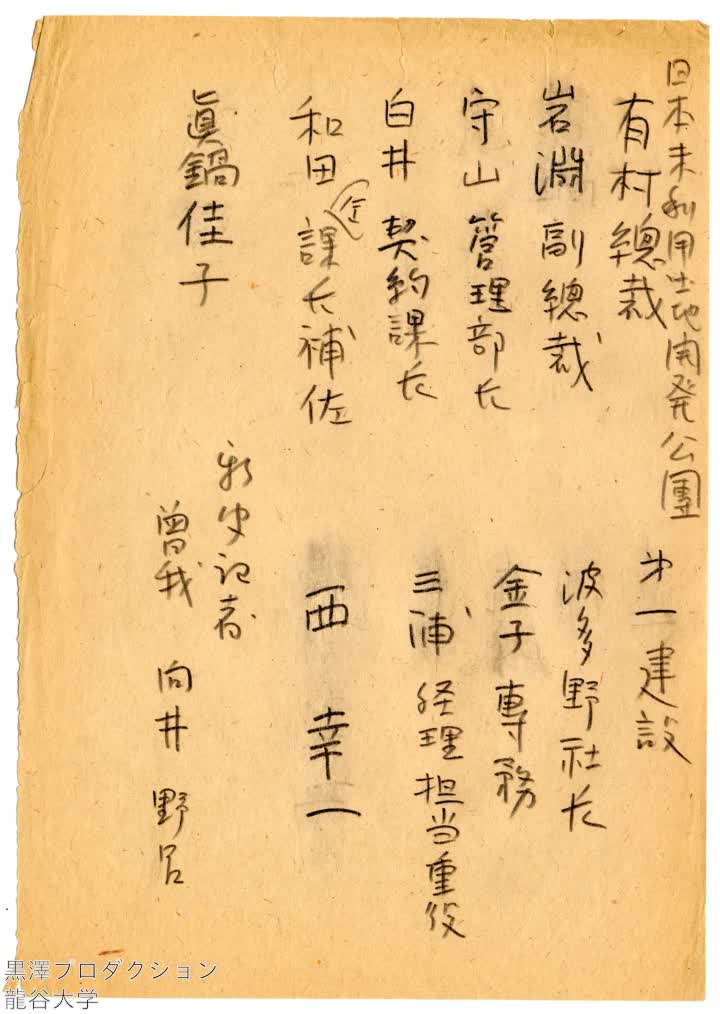 日本未利用土地開発公團
有村總裁
岩淵 副總裁
守山 管理部長
白井 契約課長
和田 課長補佐
眞鍋佳子
才一建設
波多野社長
金子専務
三浦 経理担当重役
西 幸一
新聞記者
曽我 向井 野呂
黒澤プロダクション
龍谷大学